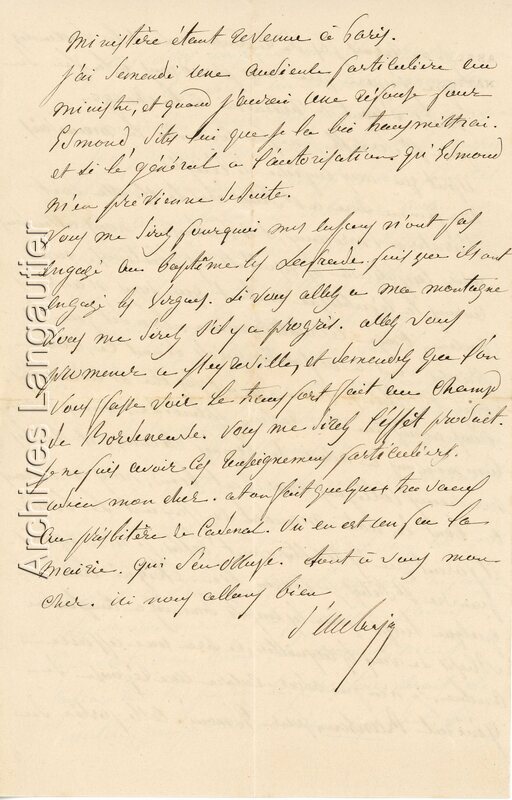 ministère étant revenue à Paris.
J'ai demendé une audience particulière au
ministre, et quand j'aurai une réponse pour
Esmond, dites lui que je la lui transmettrai.
et si le général a l'autorisation qu'Esmond
m'en prévienne desuite.
Vous me direz pourquoi mes enfans n'ont pas
engagé au baptême les puis que ils ont
engagé les Vergues. Si vous allez a ma montagne
vous me direz s'il y a progrès. allez vous
promener a et demendez que l'on
vous fasse voir le transport fait au champ
de Bordeneuve. Vous me direz l'effêt produit.
je ne puis avoir ces renseignement particuliers.
mon cher. a t on fait quelques travaux
au presbitère de Cadenac. Où en est un peu la
mairie. qui s'en occupe. tout à vous mon
cher. ici nous allons bien
Archives Langautier